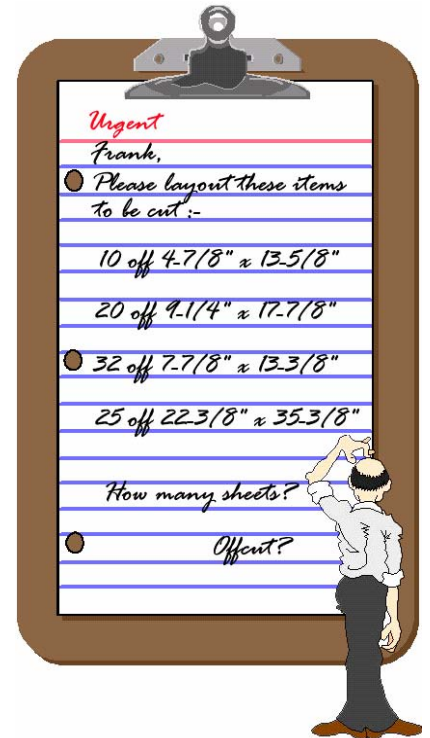 Urgent
Frank,
Please layout these items
to be cut :-
10 off 4-7/8" x 13-5/8"
20 off 9-1/4" x 17-7/8"
32 off 7-7/8" x 13-3/8"
25 off 22-3/8" x 35-3/8"
How many sheets?
Offcut?